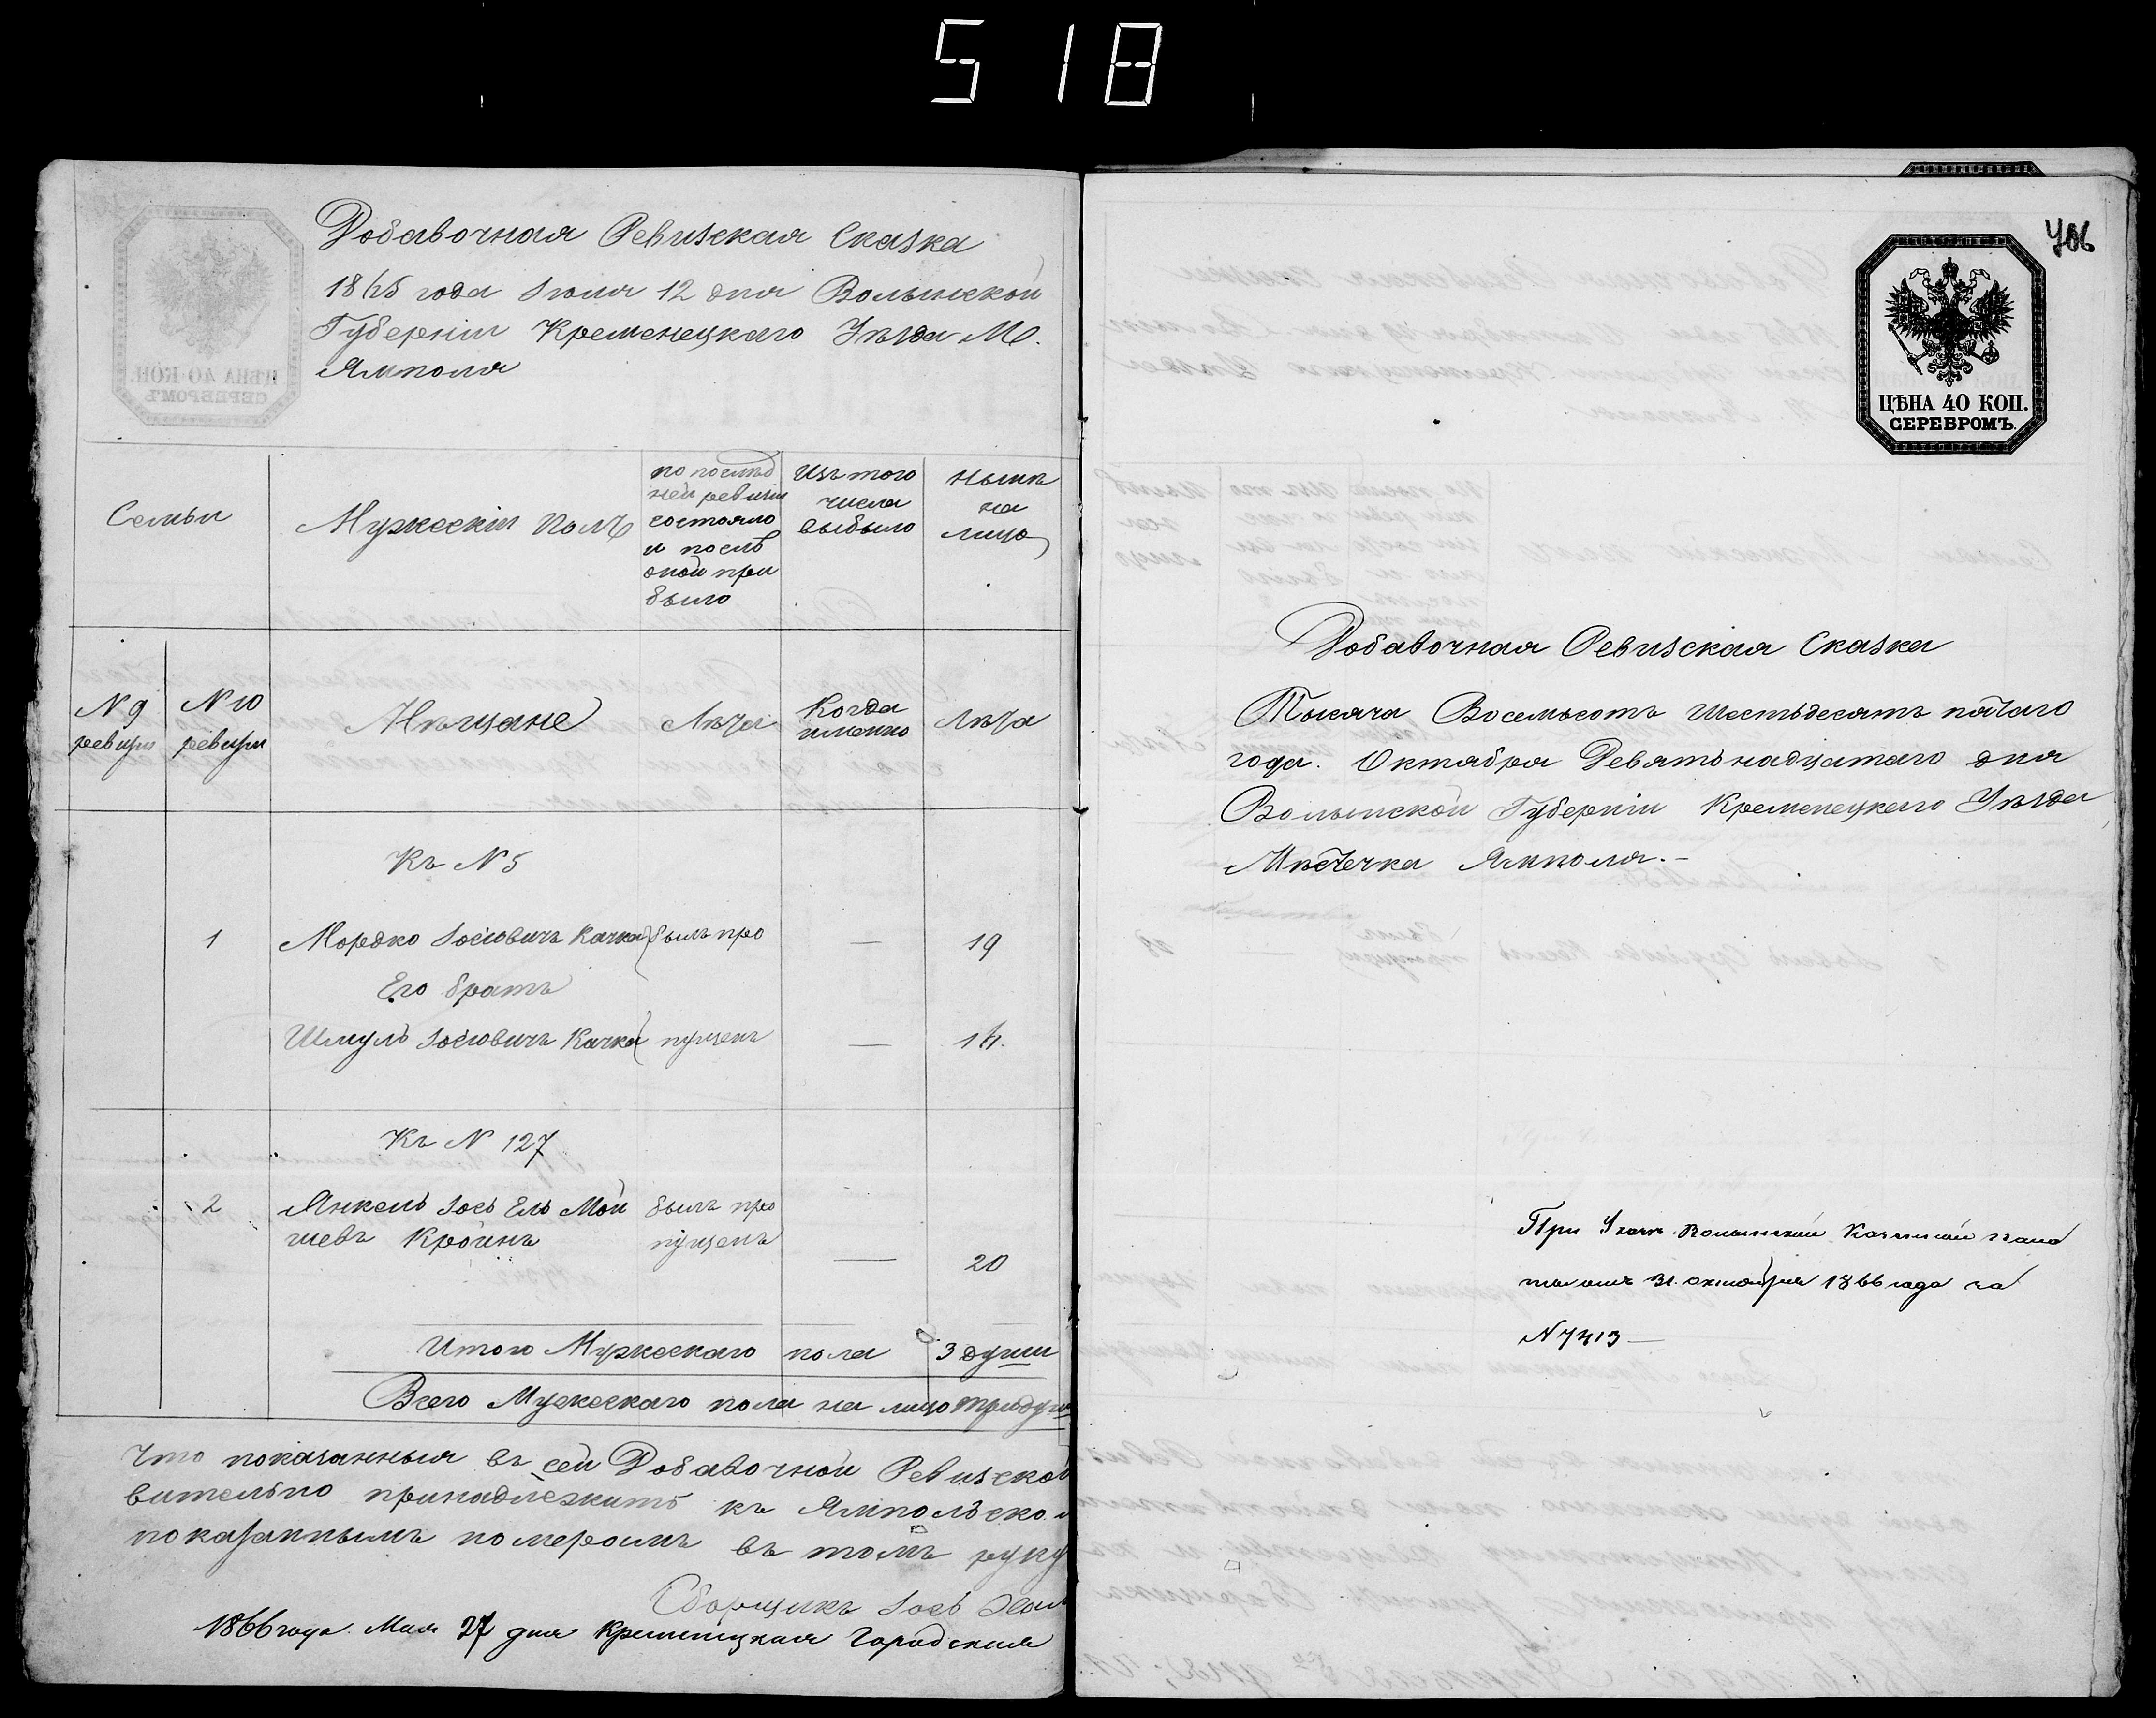 518
Добавочная Ревизская Сказка
1865 года Іюля 12 дня Волынской
Губерніи Кременецкаго Уѣзда М.
Ямполя
Семьи
Мужескій Полъ
по послѣд
ней ревизіи
состояло
и послѣ
оной при
было
Изъ того
числа
выбыло
Нынѣ
на
лицо
N 9
ревизіи
N 10
ревизіи
Мѣщане
Лѣта
Когда
именно
Лѣта
Къ N 5
1 Мордко Іосіовичъ Качка былъ про — 19
Его братъ
Шмуль Іосіовичъ Качка пущенъ — 14.
Къ N 127
2 Янкель Іось Ель Мой былъ про
шевъ Кройнъ пущенъ — 20
Итого Мужескаго пола 3 души
Всего Мужескаго пола на лицо три души
Что показанныя въ сей Добавочной Ревизской
вительно принадлежитъ къ Ямпольско
показаннымъ номерамъ въ томъ руку
Сборщикъ Іось
1866 года. Мая 27 дня Кременецкая Городская
706
ЦѢНА 40 КОП.
СЕРЕБРОМЪ.
Добавочная Ревизская Сказка
Тысяча Восемьсотъ Шестьдесятъ пятаго
года. Октября Девятьнадцатаго дня
Волынской Губерніи Кременецкаго Уѣзда
Мѣстечка Ямполя.–
При Указѣ Волынской Казенной пала
ты отъ 31. октября 1866 года за
N 7413 —